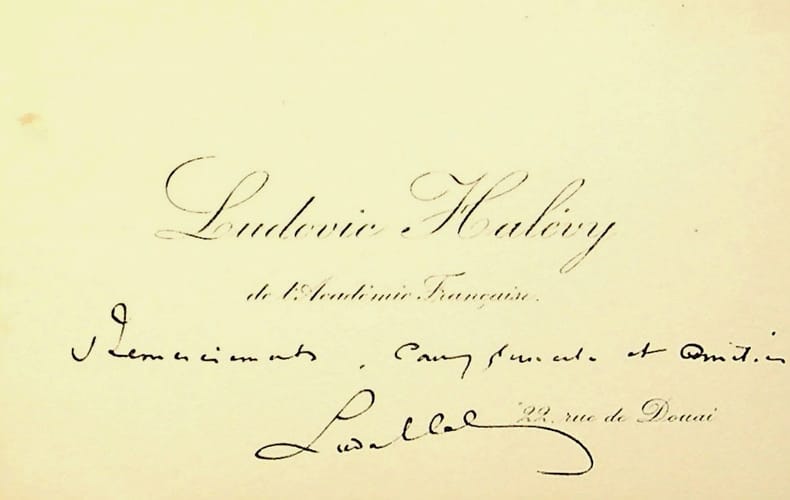 Ludovic Halévy
de l'Académie Française.
Remerciements, Compliments et amitiés
22, rue de Douai